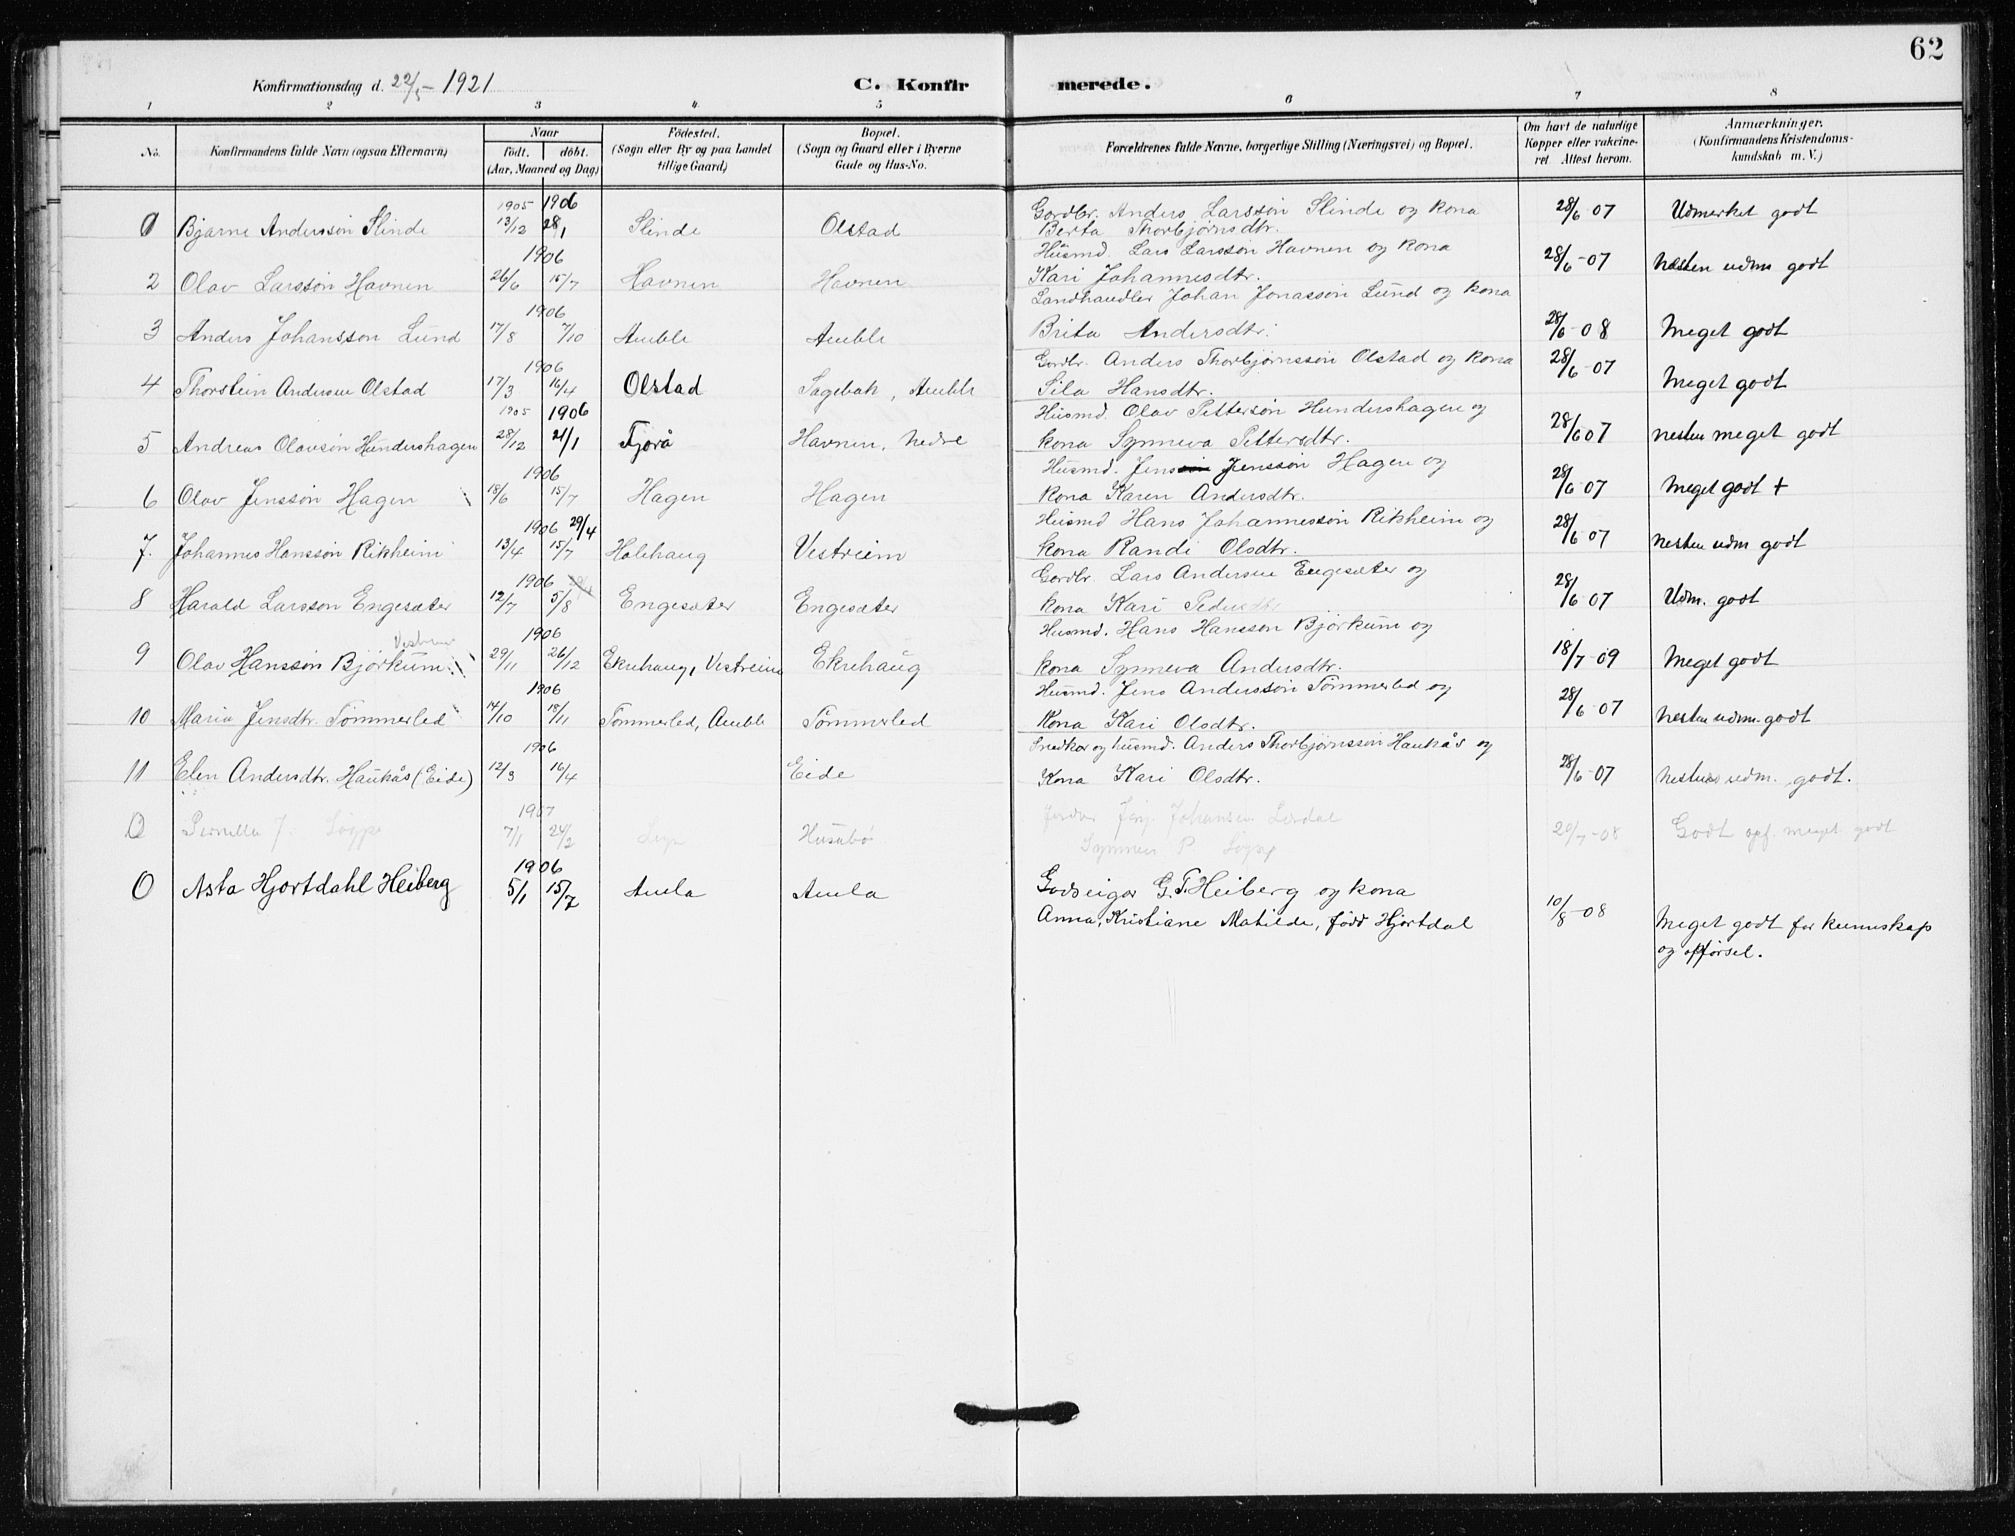 62
Konfirmationsdag d. 22/5 - 1921
C. Konfirmerede.
1 2 3 4 5 6 7 8
No.
Konfirmandens fulde Navn (ogsaa Efternavn)
Naar
födt. döbt.
(Aar, Maaned og Dag)
Födested.
(Sogn eller By og paa Landet
tillige Gaard)
Bopæl.
(Sogn og Gaard eller i Byerne
Gade og Hus-No.
Forældrenes fulde Navne, borgerlige Stilling (Næringsvei) og Bopæl.
Om havt de naturlige
Kopper eller vakcine-
ret Attest herom.
Anmærkninger.
(Konfirmandens Kristendoms-
kundskab m. V.)
1905 1906 Gardbr. Anders Larssøn Slinde og kona
1 Bjarne Anderssøn Slinde 13/12 28/1 Slinde Olstad Berta Thorbjørnsdtr. 28/6 07 Udmerket godt
1906 Husmd. Lars Larssøn Havnen og kona
2 Olav Larssøn Havnen 26/6 15/7 Havnen Havnen Kari Johannesdtr. 28/6-07 Næsten udm godt
1906 Landhandler Johan Jonassøn Lund og kona
3 Anders Johanssøn Lund 17/8 7/10 Amble Amble Brita Andersdtr. 28/6-08 Meget godt
1906 Gardbr. Anders Thorbjørnssøn Olstad og kona
4 Thorstein Andersen Olstad 17/3 16/4 Olstad Sagebak, Amble Sila Hansdtr. 28/6-07 Meget godt
1905 1906 Husmd. Olav Pettersøn Hundershagen og
5 Andreas Olavsøn Hundershagen 28/12 21/1 Fjørå Havnen, Nedre kona Synneva Pettersdtr. 28/6 07 nesten meget godt
1906 Husmd. Jens Jenssøn Hagen og
6 Olav Jenssøn Hagen 18/6 15/7 Hagen Hagen kona Karen Andersdtr. 28/6 07 Meget godt +
1906 29/4 Husmd Hans Johannessøn Rikheim og
7. Johannes Hanssøn Rikheim 13/4 15/7 Holehaug Vestreim kona Randi Olsdtr. 28/6 07 nesten udm godt
1906 Gardbr. Lars Andersen Engesæter og
8 Harald Larssøn Engesæter 12/7 5/8 Engesæter Engesæter kona Kari Pedersdtr 28/6 07 Udm. godt
Vestreim 1906 Husmd. Hans Hanssøn Bjørkum og
9 Olav Hanssøn Bjørkum 29/11 26/12 Ekrehaug, Vestreim Ekrehaug kona Synneva Andersdtr. 18/7-09 Meget godt
1906 Husmd. Jens Anderssøn Tømmerled og
10 Maria Jensdtr. Tømmerled 14/10 18/11 Tømmerled, Amble Tømmerled Kona Kari Olsdtr. 28/6-07 nesten udm. godt
1906 Snedker og husmd. Anders Thorbjørnssøn Haukås og
11 Elen Andersdtr. Haukås (Eide) 12/3 16/4 Eide Kona Kari Olsdtr. 28/6-07 nesten udm. godt.
1907 Johansen Lerdal
0 Pernella J. 7/1 24/2 Husabø 29/7-08 Godt opf. meget godt
1906 Godseigar G. F. Heiberg og kona
0 Asta Hjortdahl Heiberg 5/1 15/7 Amla Amla Anna, Kristiane Matilde, født Hjortdal 10/8-08 Meget godt for kunnskap
og opførsel.